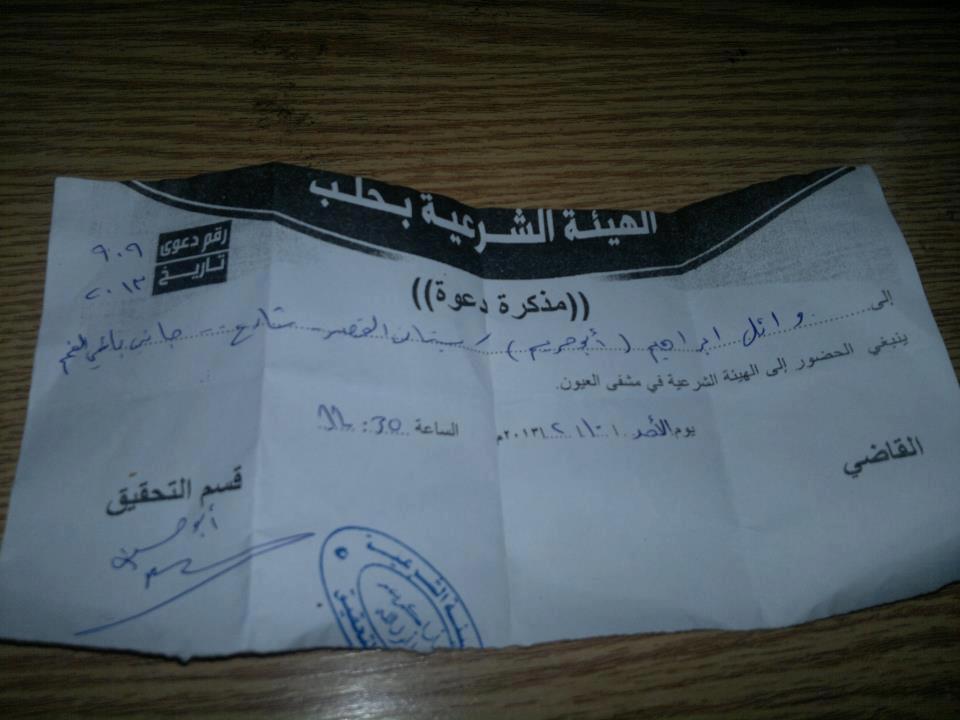 الهيئة الشرعية بحلب
رقم دعوى ٩٠٩
تاريخ ٢٠١٣
((مذكرة دعوة))
إلى وائل ابراهيم (أبو مريم) / بستان القصر - شارع - جانب
ينبغي الحضور إلى الهيئة الشرعية في مشفى العيون.
يوم الأحد ١٠ / ٢ / ٢٠١٣م الساعة 11:30
القاضي
قسم التحقيق
أبو حسن
الشرعية